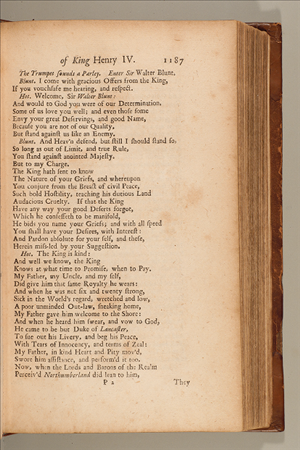 of King Henry IV. 1187
The Trumpet sounds a Parley. Enter Sir Walter Blunt.
Blunt. I come with gracious Offers from the King,
If you vouchsafe me hearing, and respect.
Hot. Welcome, Sir Walter Blunt:
And would to God you were of our Determination.
Some of us love you well; and even those some
Envy your great Deservings, and good Name,
Because you are not of our Quality,
But stand against us like an Enemy.
Blunt. And Heav'n defend, but still I should stand so,
So long as out of Limit, and true Rule,
You stand against anointed Majesty.
But to my Charge.
The King hath sent to know
The Nature of your Griefs, and whereupon
You conjure from the Breast of civil Peace,
Such bold Hostility, teaching his dutious Land
Audacious Cruelty. If that the King
Have any way your good Deserts forgot,
Which he confesseth to be manifold,
He bids you name your Griefs; and with all speed
You shall have your Desires, with Interest:
And Pardon absolute for your self, and these,
Herein mis-led by your Suggestion.
Hot. The King is kind:
And well we know, the King
Knows at what time to Promise, when to Pay.
My Father, my Uncle, and my self,
Did give him that same Royalty he wears:
And when he was not six and twenty strong,
Sick in the World's regard, wretched and low,
A poor unminded Out-law, sneaking home,
My Father gave him welcome to the Shore:
And when he heard him swear, and vow to God,
He came to be but Duke of Lancaster,
To sue out his Livery, and beg his Peace,
With Tears of Innocency, and terms of Zeal:
My Father, in kind Heart and Pity mov'd,
Swore him assistance, and perform'd it too.
Now, when the Lords and Barons of the Realm
Perceiv'd Northumberland did lean to him,
P 2 They